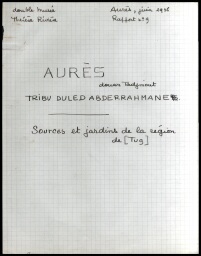 double Musée
Thérèse Rivière
Aurès, juin 1936
Rapport n° 9
AURÈS
douar Tadjmout
TRIBU OULED ABDERRAHMANE
Sources et jardins de la région
de [Tug]